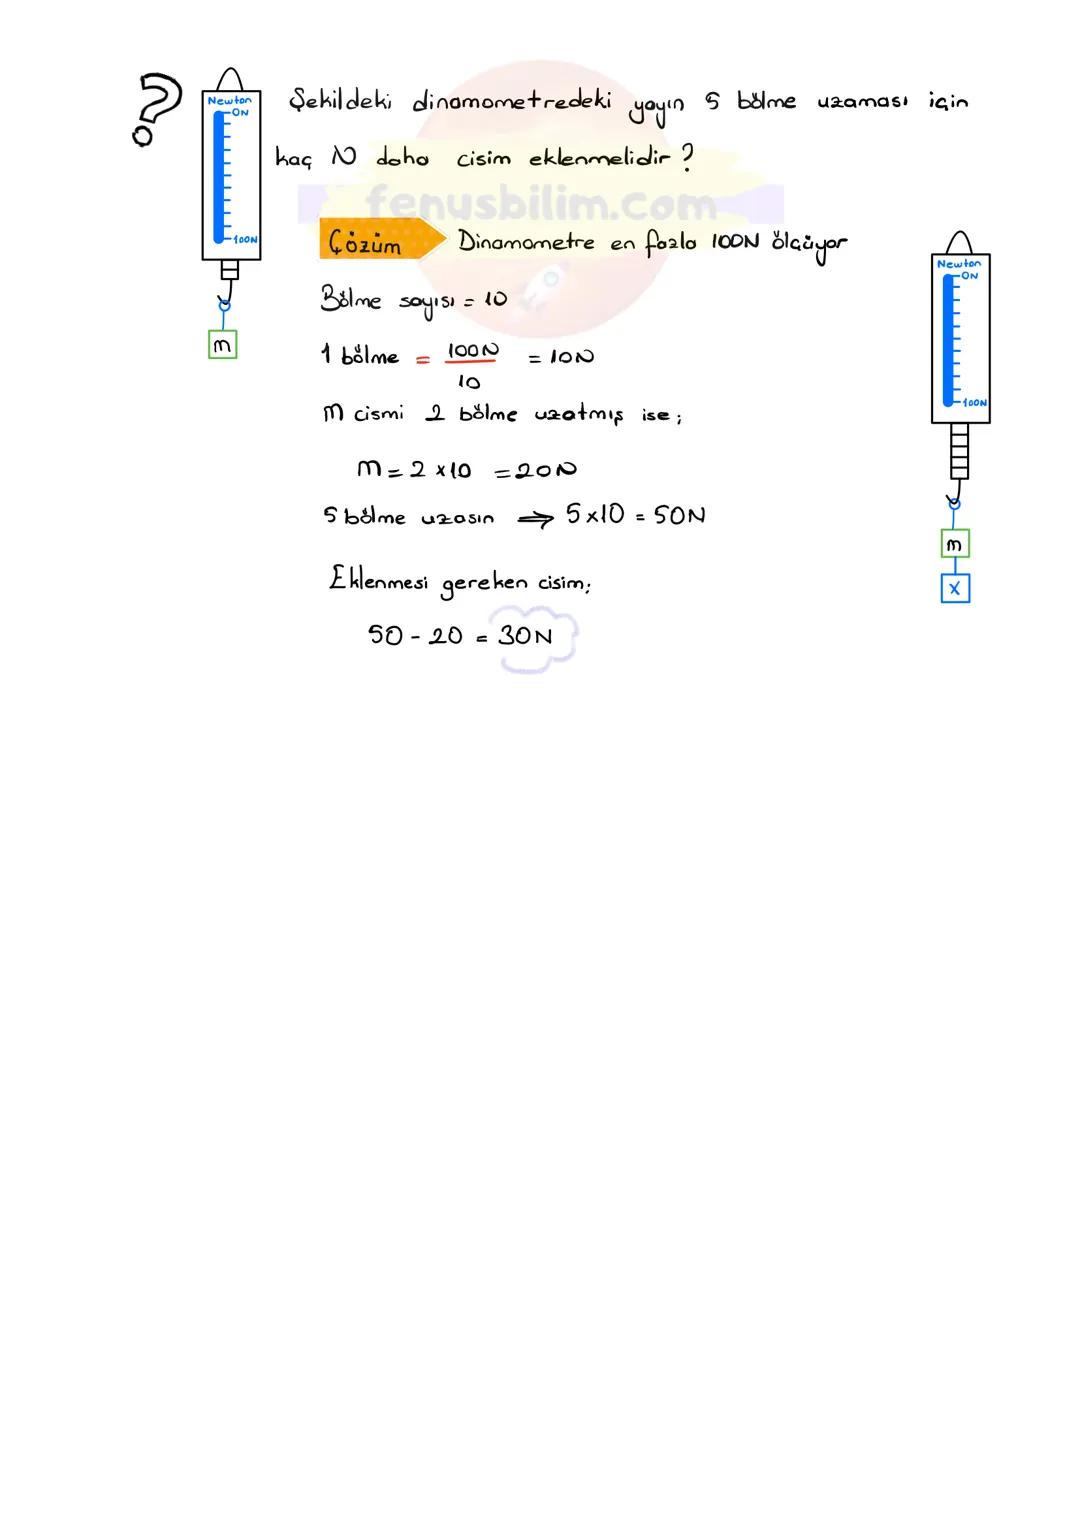 ?
Newton
0N
100N
m
Şekildeki dinamometredeki yayın 5 bölme uzaması için
kaç N daha cisim eklenmelidir ?
fenusbilim.com
Çözüm Dinamometre en fazla 100N ölçüyor
Bölme sayısı = 10
1 bölme = 100N / 10 = 10N
m cismi 2 bölme uzatmış ise ;
m = 2 x 10 = 20N
5 bölme uzasın ⇒ 5x10 = 50N
Eklenmesi gereken cisim;
50 - 20 = 30N
Newton
0N
100N
m
X